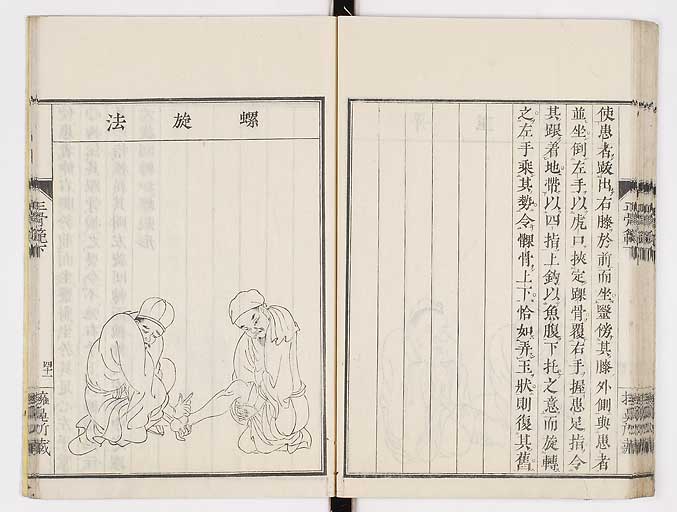 使患者跋出右膝於前而坐毉傍其膝外側與患者
並坐倒左手以虎口挾定踝骨覆右手握患足指令
其踝着地帶以四指上鈎以魚腹下托之意而旋轉
之左手乘其勢令髁骨上下恰如弄玉狀則復其舊
螺旋法
正骨範下